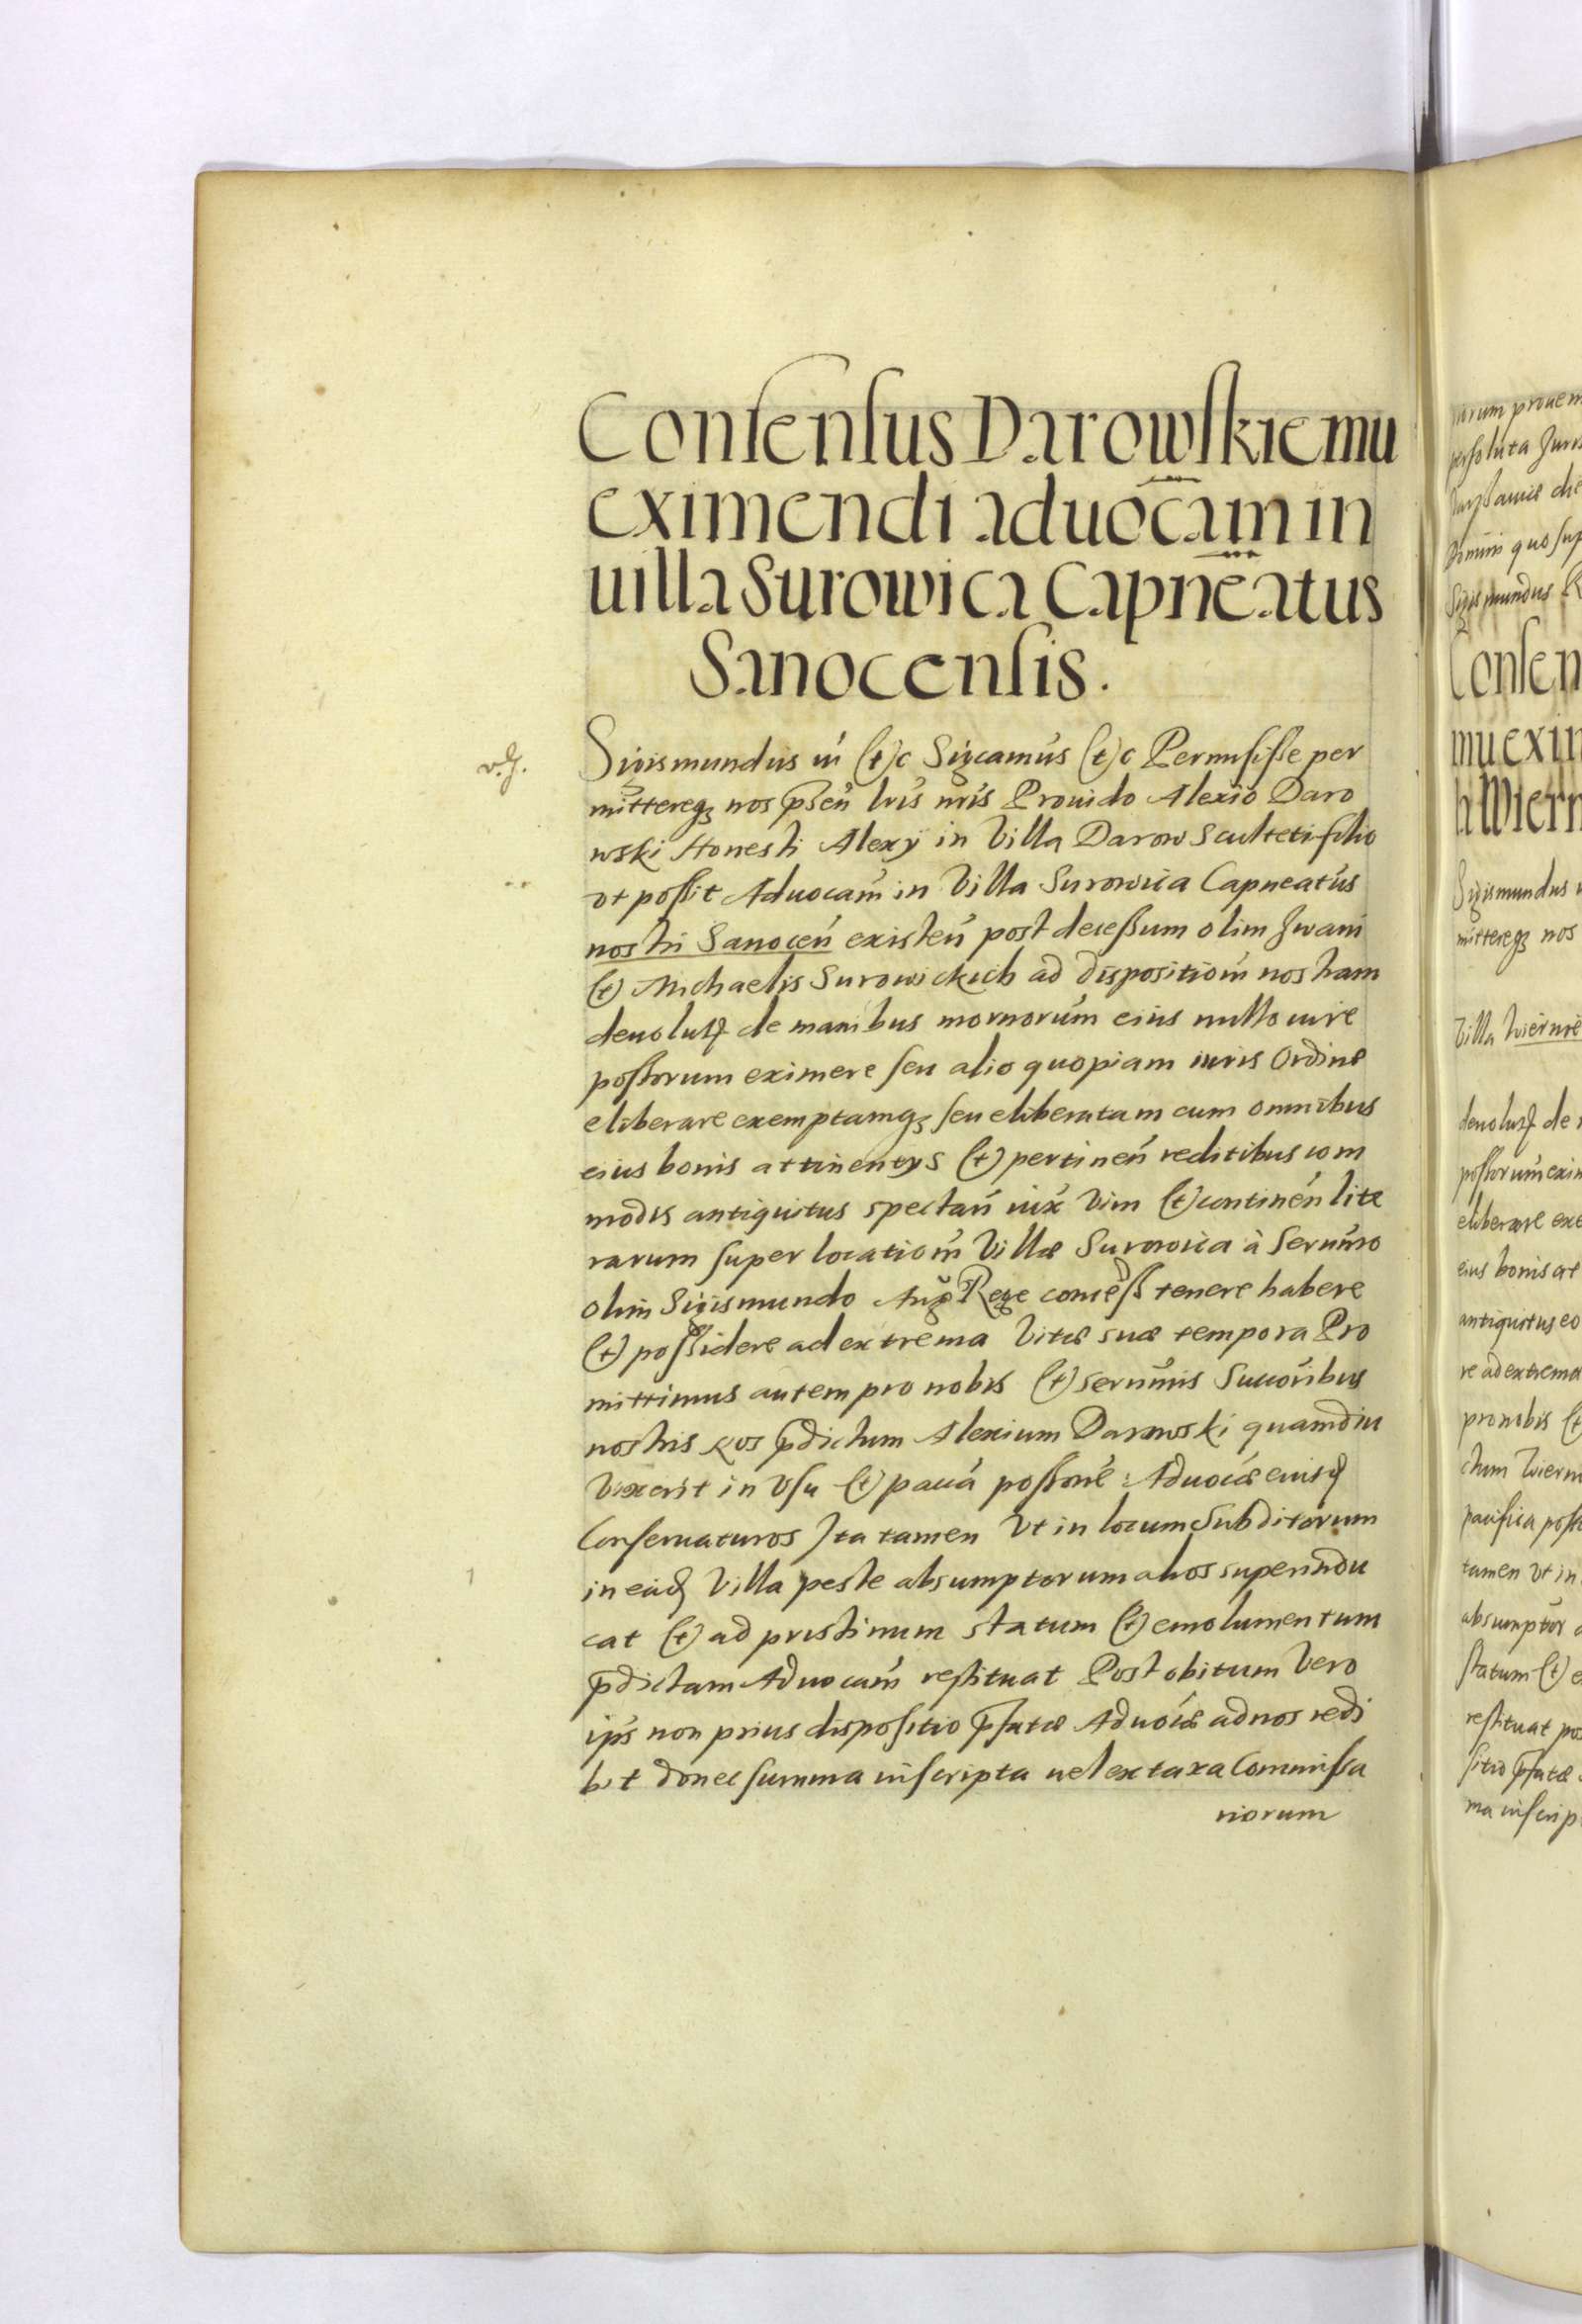 Consensus Darowskiemu
eximendi aduocam in
uilla Surowica Capneatus
Sanocensis.
v. J.
Sigismundus iii (et)c Sigcamus (et)c Permisisse per
mittereq; nos pnsen lris nris Prouido Alexio Daro
wski Honesti Alexy in Villa Darow Sculteti filio
vt possit Aduocam in Villa Surowica Capneatus
nostri Sanocen existen post decessum olim Iwani
(et) Michaelis Surowickich ad dispositiom nostram
deuolut de manibus modernorum eius nullo iure
possorum eximere seu alio quopiam iuris Ordine
eliberare exemptamq; seu eliberatam cum omnibus
eius bonis attinentys (et) pertinen reditibus com
modis antiquitus spectan iux Vim (et) continen lite
rarum super locatiom Villæ Surowica à Sernmo
olim Sigismundo Aug Rege concess tenere habere
(et) possidere ad extrema Vitæ suæ tempora Pro
mittimus autem pro nobis (et) sernmis Succoribus
nostris nos pdictum Alexium Darowski quamdiu
Vixerit in Vsu (et) paca possone Aduocæ eiusd
Conseruaturos Ita tamen Vt in locum Subditorum
in ead Villa peste absumptorum alios superindu
cat (et) ad pristinum statum (et) emolumentum
pdictam Aduocam restituat Post obitum Vero
ips non prius dispositio pfatæ Aduocæ ad nos redi
bit donec summa inscripta uel ex taxa Commissa
riorum
Consen
mu exim
Sigismundus
mittereq; nos
Villa
deuolut de
eliberare exe
eius bonis at
re ad extrema
pro nobis (et)
pacifica poss
tamen vt in
statum (et) e
restituat pos
sitio pfatæ
ma inscrip